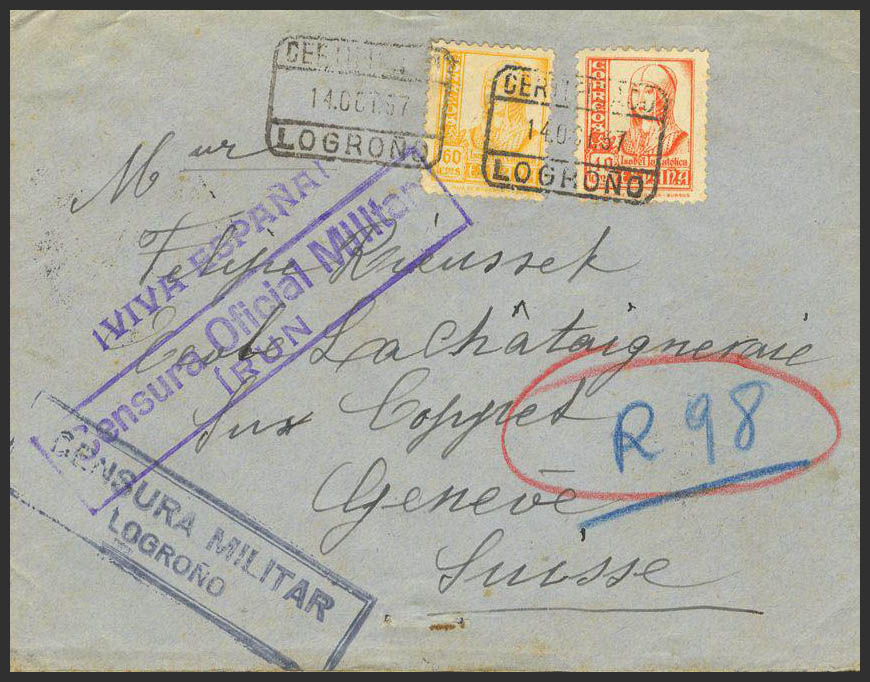 CERTIFICADO
14.OCT.37
LOGROÑO
CERTIFICADO
14.OCT.37
LOGROÑO
CORREOS
60
CTS
CORREOS
Isabel la Católica
ESPAÑA
Mur
Felipe
Ecole La Châtaigneraie
Sur Coppet
Genève
Suisse
¡VIVA ESPAÑA!
Censura Oficial Militar
IRÚN
CENSURA MILITAR
LOGROÑO
R 98